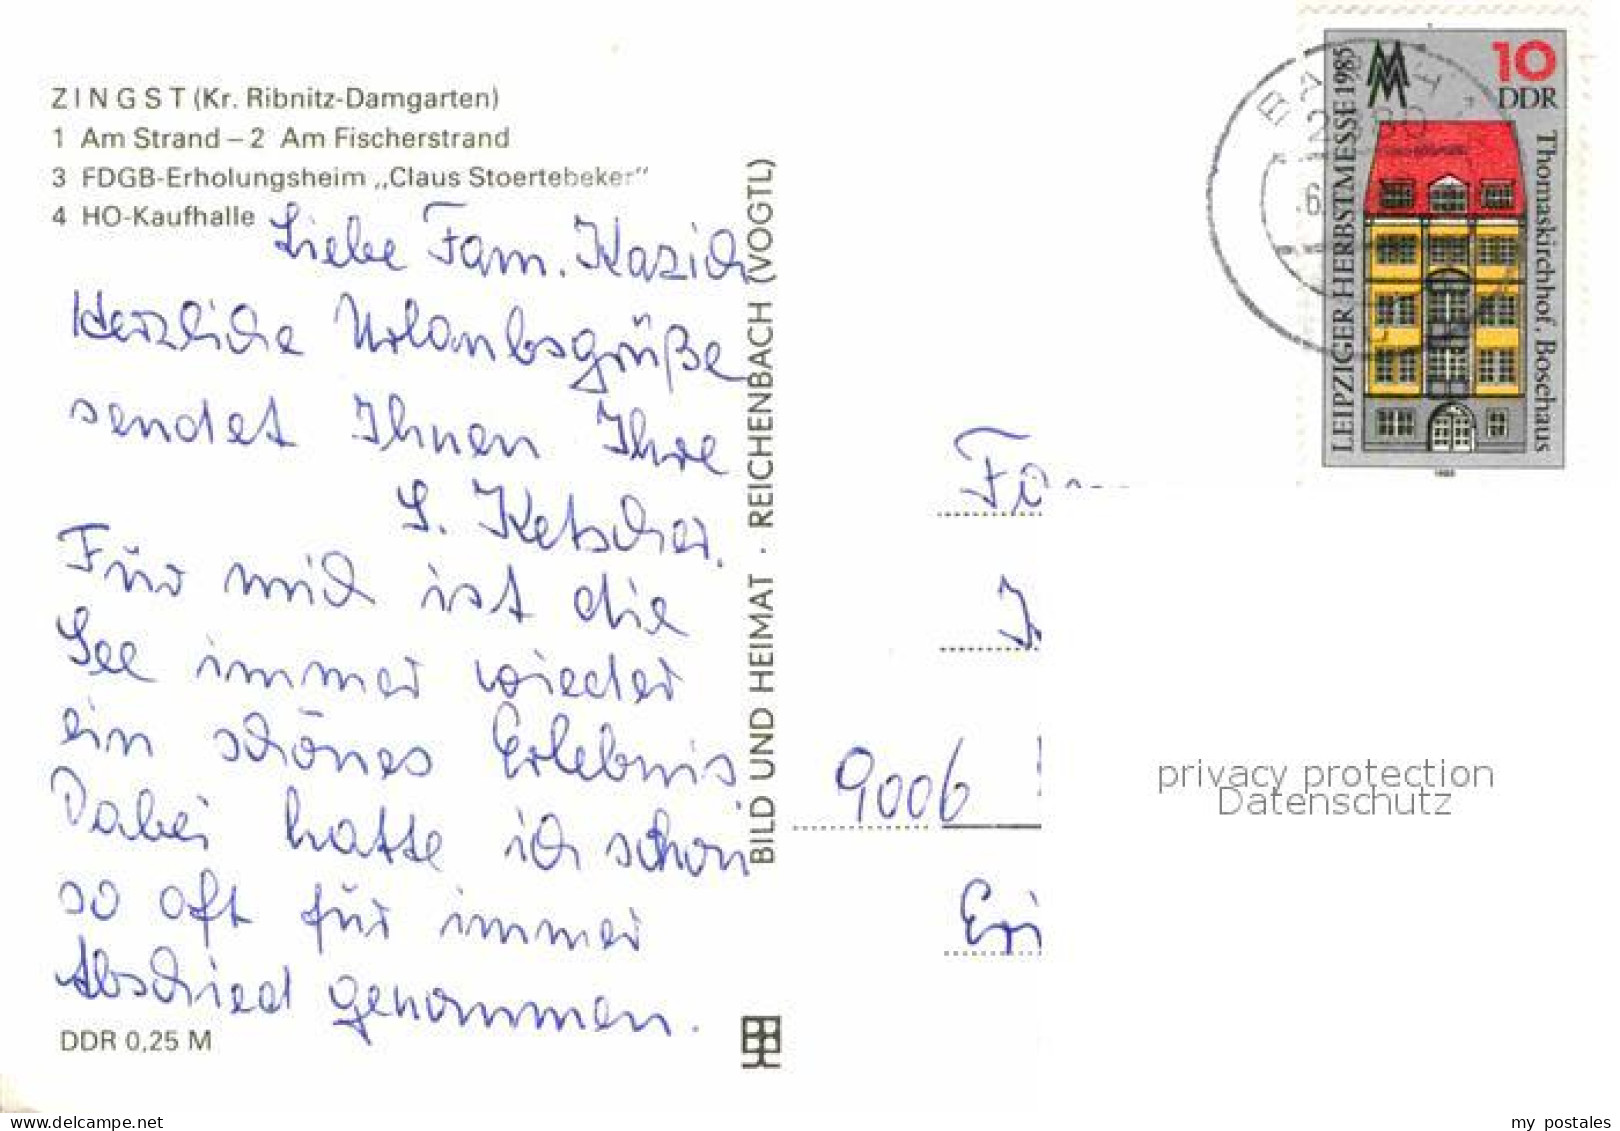 ZINGST (Kr. Ribnitz-Damgarten)
1 Am Strand – 2 Am Fischerstrand
3 FDGB-Erholungsheim „Claus Stoertebeker"
4 HO-Kaufhalle
Liebe Fam. Kazich
Herzliche Urlaubsgrüße
sendet Ihnen Ihre
S. Ketscher.
Für mich ist die
See immer wieder
ein schönes Erlebnis
Dabei hatte ich schon
so oft für immer
Abschied genommen.
DDR 0,25 M
BILD UND HEIMAT · REICHENBACH (VOGTL)
LEIPZIGER HERBSTMESSE 1985
10
DDR
Thomaskirchhof, Bosehaus
1985
BARTH
Fam
9006
privacy protection
Datenschutz
www.delcampe.net
my postales